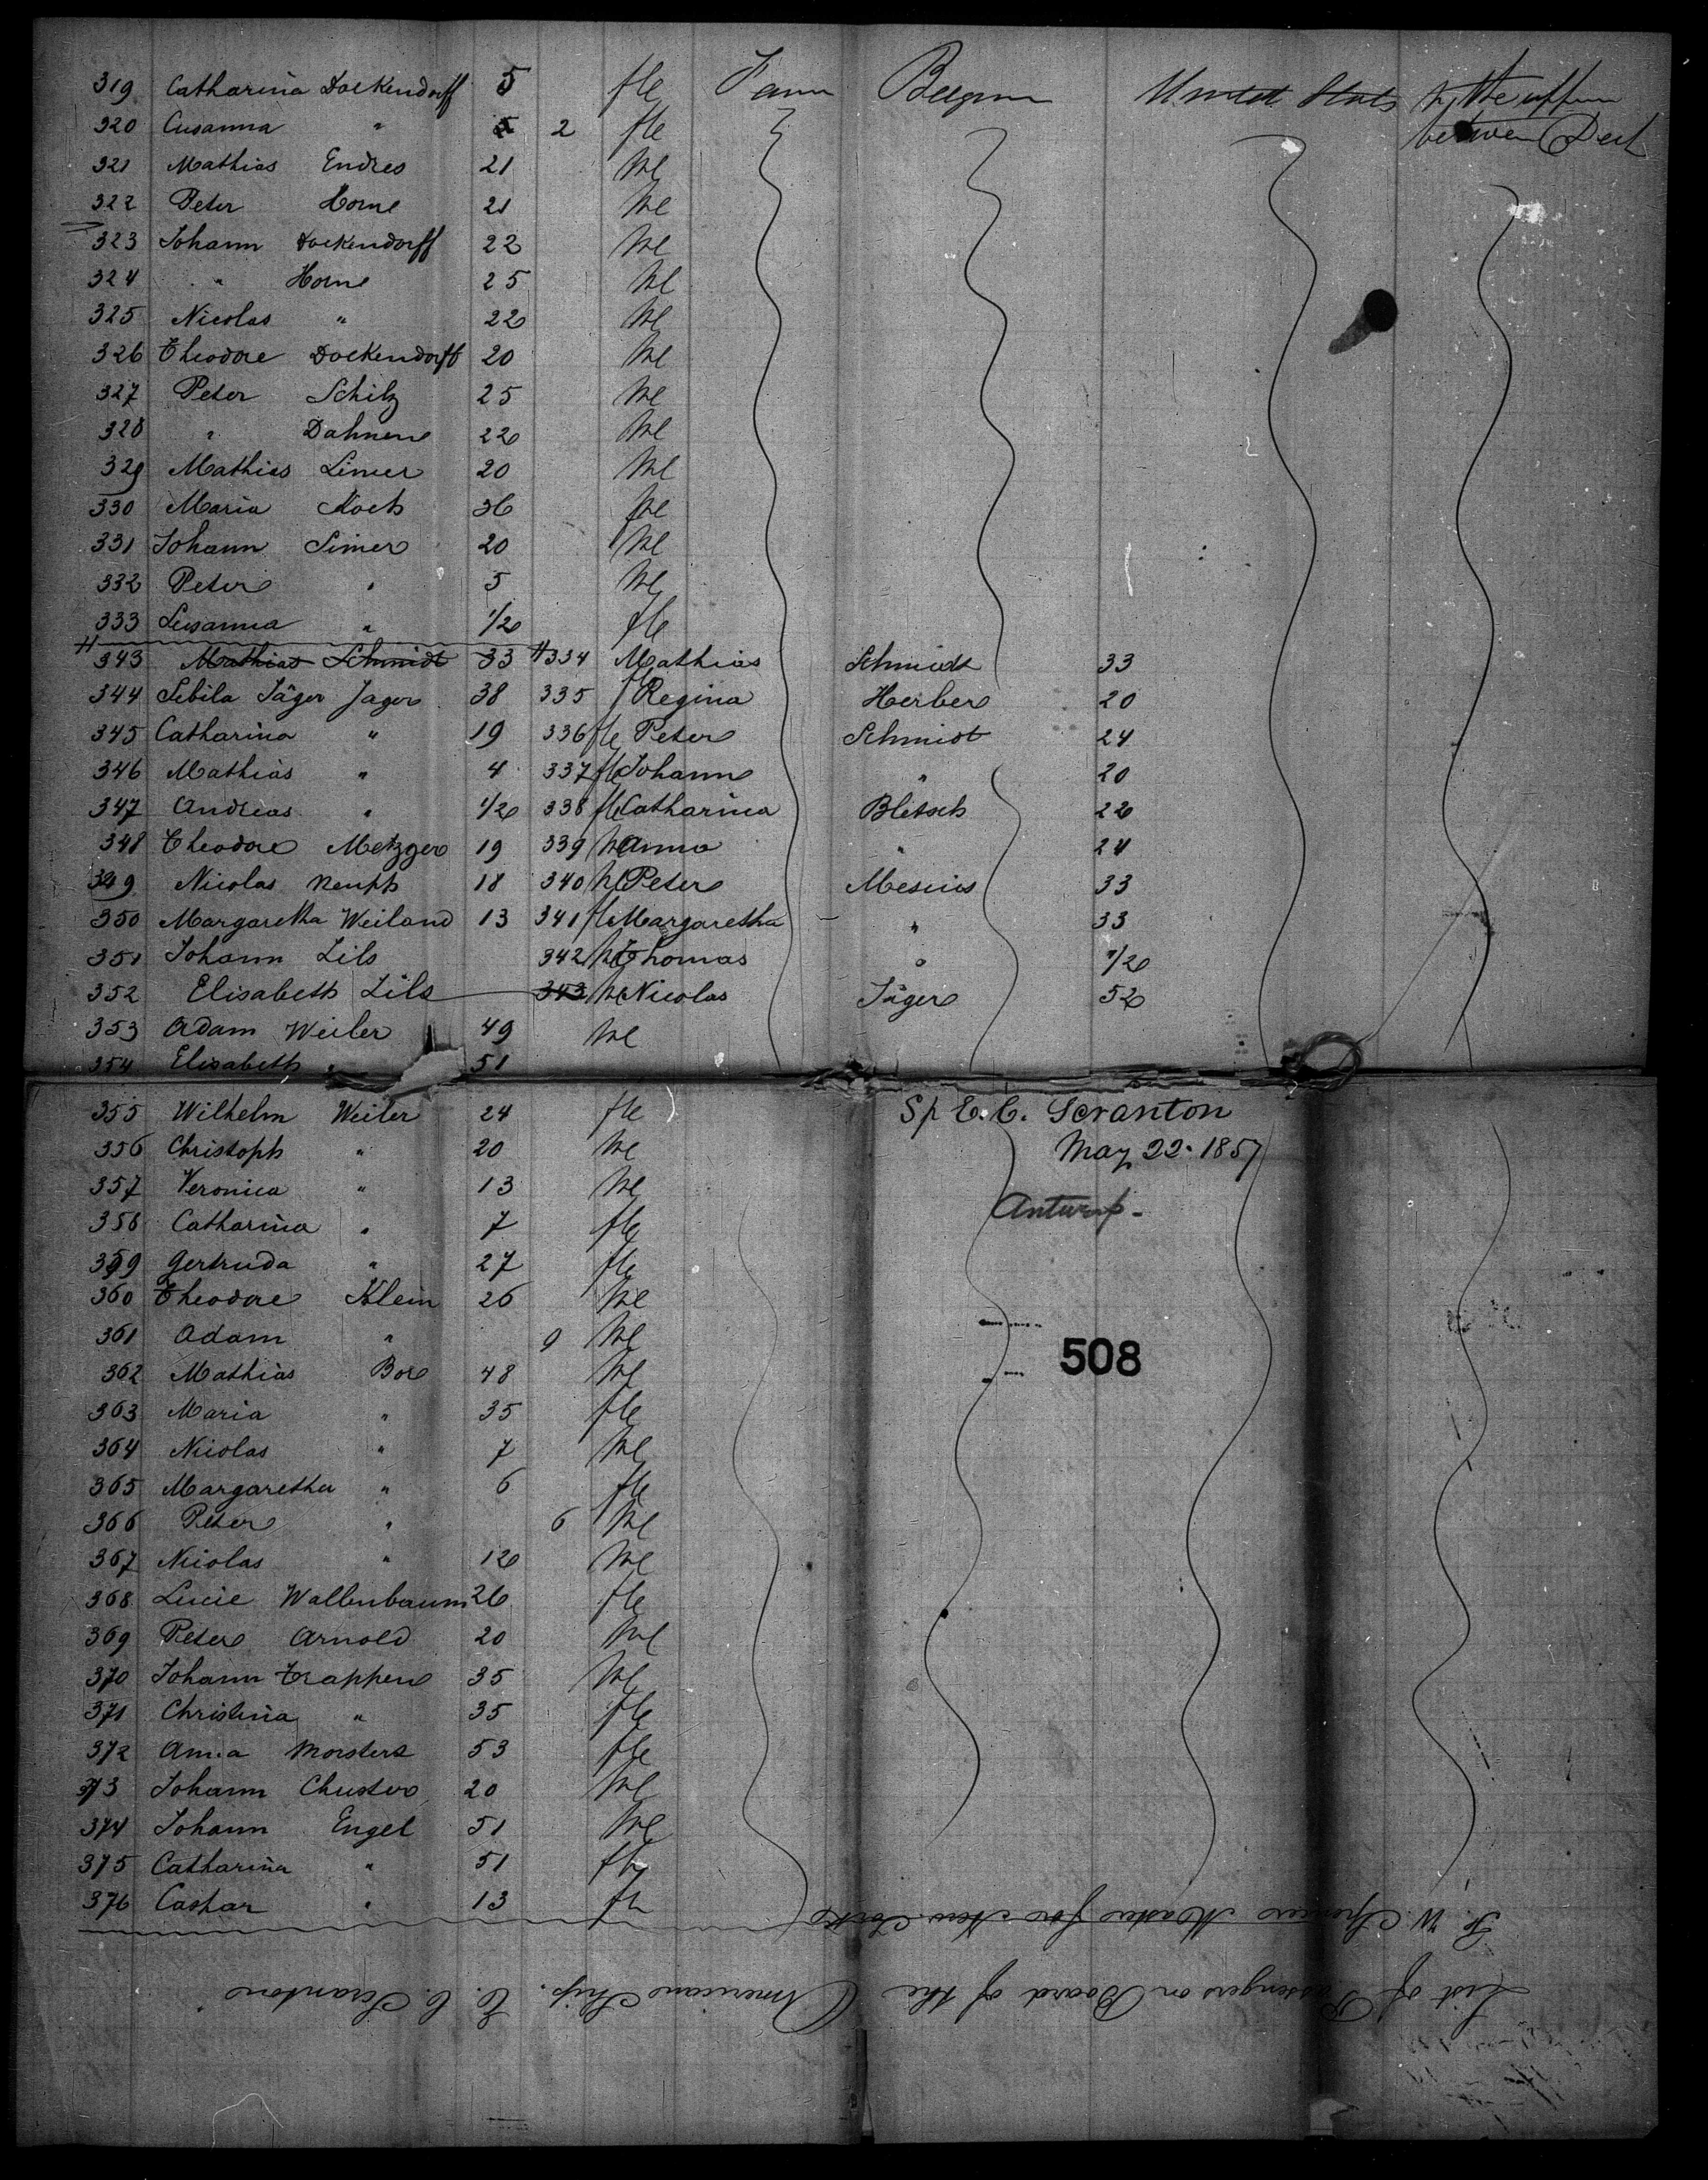 319 Catharina Dockendorff 5 fle Farm Belgium United Stats in the uppern
320 Cusanna " 2 fle between Deck
321 Mathias Endres 21 Ml
322 Peter Horne 21 Ml
323 Johann Dockendorff 22 Ml
324 " Horne 25 Ml
325 Nicolas " 22 Ml
326 Theodore Dockendorff 20 Ml
327 Peter Schilz 25 Ml
328 " Dahmen 22 Ml
329 Mathias Limer 20 Ml
330 Maria Koch 36 fle
331 Johann Simer 20 Ml
332 Peter " 5 Ml
333 Susanna " 1/2 fle
# 343 Mathias Schmidt 33 #334 Mathias Schmidt 33
344 Sebila Jäger Jager 38 335 fle Regina Herber 20
345 Catharina " 19 336 fle Peter Schmidt 24
346 Mathias " 4 337 fle Johann " 20
347 Andreas " 1/2 338 fle Catharina Bletsch 22
348 Theodore Metzger 19 339 Ml Anna " 24
349 Nicolas 18 340 Ml Peter Mesuis 33
350 Margaretha Weiland 13 341 fle Margaretha " 33
351 Johann Lils 342 Ml Thomas " 1/2
352 Elisabeth Lils 343 Ml Nicolas Jäger 52
353 Adam Weiler 49 Ml
354 Elisabeth " 51
355 Wilhelm Weiler 24 fle Sp E. C. Scranton
356 Christoph " 20 Ml May 22. 1857
357 Veronica " 13 Ml
358 Catharina " 7 fle Antwerp -
359 Gertruda " 27 fle
360 Theodore Klein 26 Ml
361 Adam " 9 Ml
508
362 Mathias Bor 48 Ml
363 Maria " 35 fle
364 Nicolas " 7 Ml
365 Margaretha " 6 fle
366 Peter " 6 Ml
367 Nicolas " 12 Ml
368 Lucie Wallenbaum 26 fle
369 Peter Arnold 20 Ml
370 Johann Trappen 35 Ml
371 Christina " 35 fle
372 Anna Morsters 53 fle
373 Johann Chuster 20 Ml
374 Johann Engel 51 Ml
375 Catharina " 51 fle
376 Caspar " 13 fle
List of Passengers on Board of the American Ship. E. C. Scranton
F. W. Spencer Master for New York